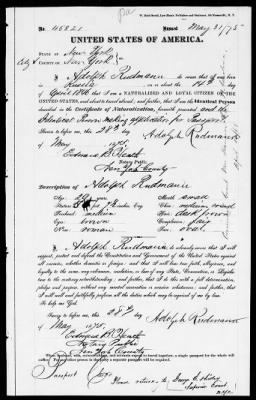 No. 45821 Issued May 31/75
UNITED STATES OF AMERICA.
STATE OF New York
City & COUNTY OF New York
I, Adolph Rudmann do swear that I was born
in Russia on the day of
April 1846 that I am a NATURALIZED AND LOYAL CITIZEN OF THE
UNITED STATES, and about to travel abroad, and further, that I am the identical Person
described in the Certificate of Naturalization, herewith presented and the
Identical Person making application for Passport
Sworn to before me, this 28th day Adolph Rudmann
of May 1875.
Notary Public
New York County
Description of Adolph Rudmann
Age, 29 years
Stature, 5 feet inches, Eng.
Forehead, medium
Eyes, brown
Nose,
Mouth, small
Chin, medium, round
Hair, dark brown
Complexion, fair
Face, oval
I, Adolph Rudmann do solemnly swear that I will
support, protect and defend the Constitution and Government of the United States against
all enemies, whether domestic or foreign; and that I will bear true faith, allegiance, and
loyalty to the same, any ordinance, resolution, or law of any State, Convention, or Legisla-
ture to the contrary notwithstanding; and further, that I do this with a full determination,
pledge and purpose, without any mental reservation or evasion whatsoever; and further, that
I will well and faithfully perform all the duties which may be required of me by law.
So help me God.
Sworn to before me, this 28th day Adolph Rudmann
of May 1875.
Notary Public
New York County
Passport
Please return to